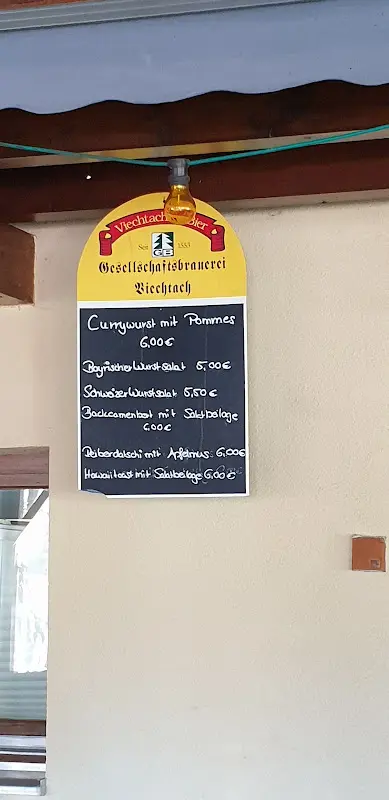 Viechtach Bier
Seit 1553
GB
Gesellschaftsbrauerei
Viechtach
Currywurst mit Pommes
6,00€
Bayrischer Wurstsalat 5,00€
Schweizer Wurstsalat 5,50€
Backcamenbert mit Salatbeilage
6,00€
Reiberdatschi mit Apfelmus 6,00€
Hawaiitoast mit Salatbeilage 6,00€